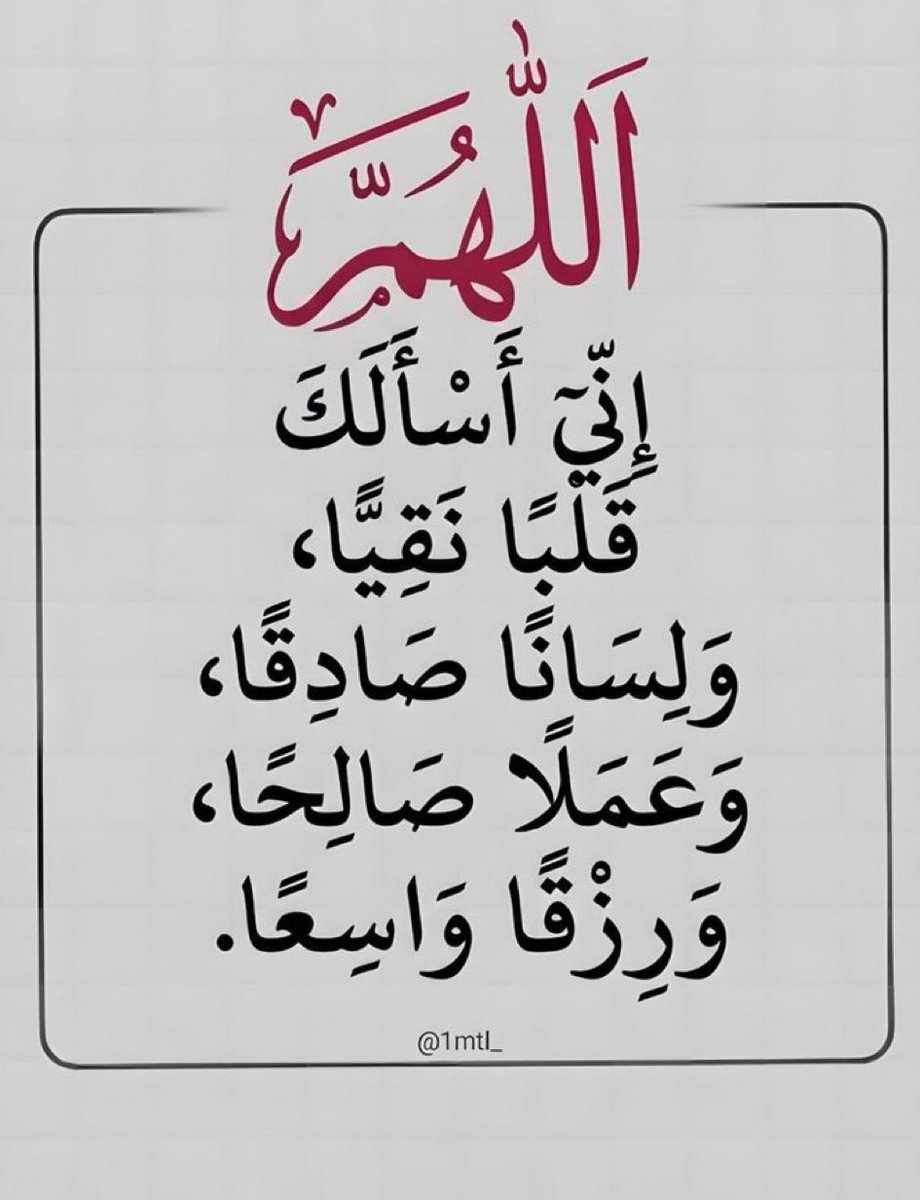 اَللّٰهُمَّ
إِنِّيٓ أَسْأَلَكَ
قَلْبًا نَقِيًّا،
وَلِسَانًا صَادِقًا،
وَعَمَلًا صَالِحًا،
وَرِزْقًا وَاسِعًا.
@1mtl_